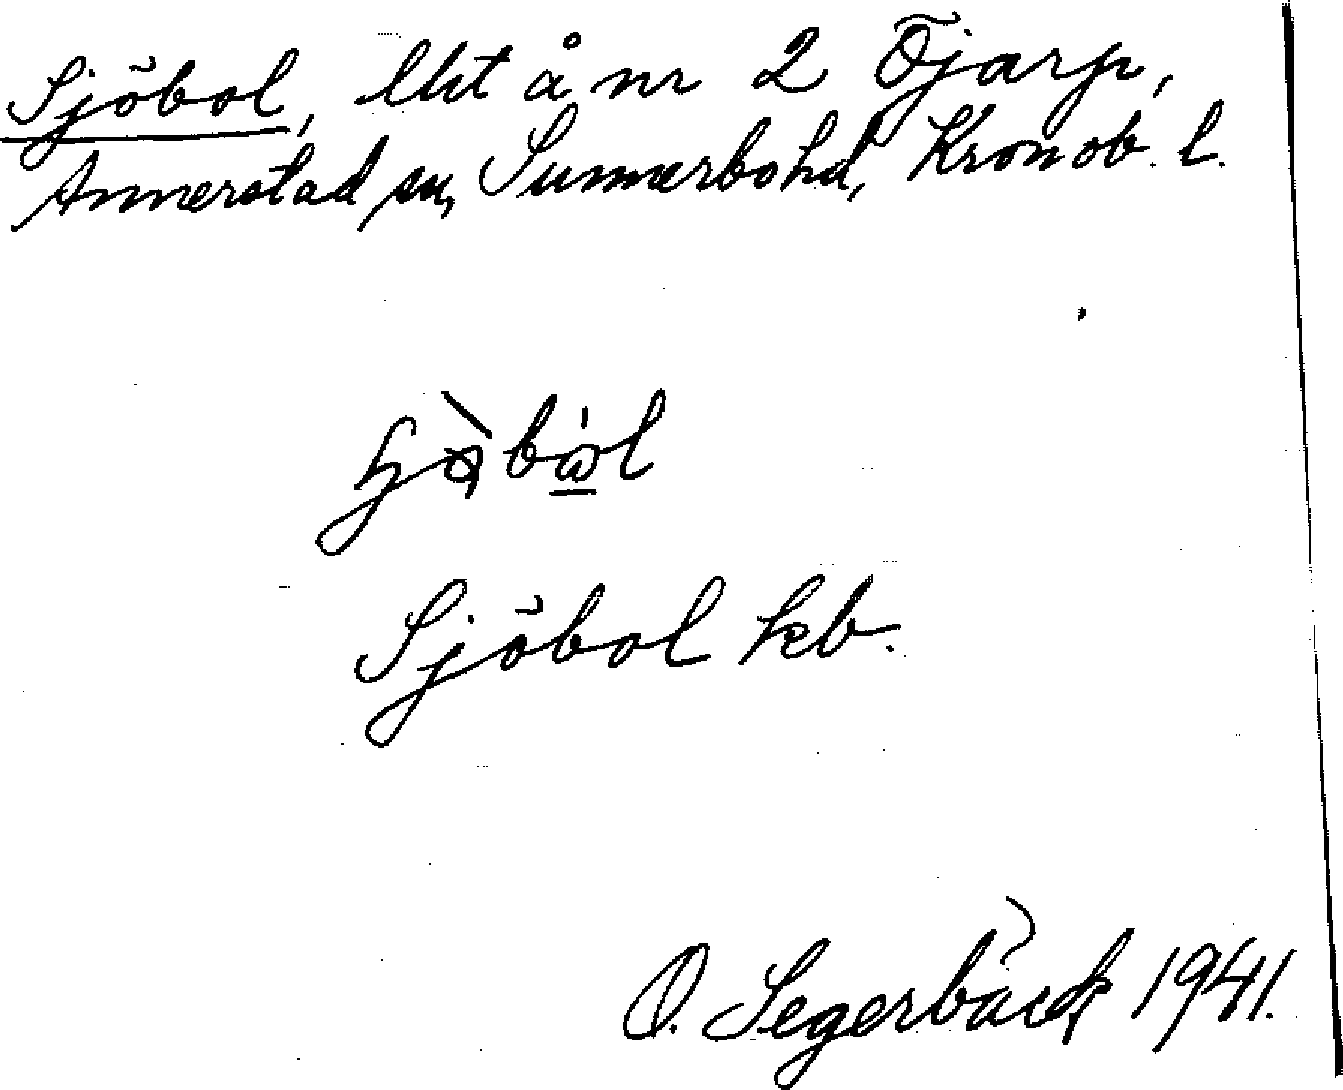 Sjöbol, lht å nr 2 Öjarp,
Annerstad sn, Sunnerbo hd, Kronob. l.
Sjöbol kb.
O. Segerbäck 1941.